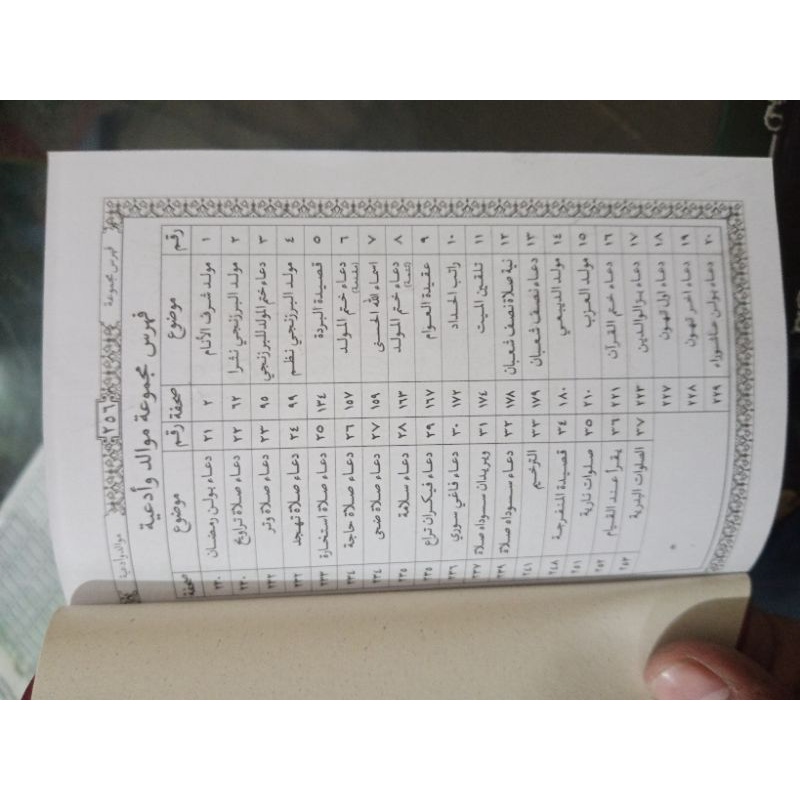 فهرس مجموعة ٢٥٦ موالد وأدعية
فهرس مجموعة موالد وأدعية
رقم موضوع صحفة رقم موضوع صحفة
١ مولد شرف الأنام ٢ ٢١ دعاء بولن رمضان ٢٣٠
٢ مولد البرزنجي نثرا ٦٢ ٢٢ دعاء صلاة تراويح ٢٣٠
٣ دعاء ختم المولد للبرزنجي ٩٥ ٢٣ دعاء صلاة وتر ٢٣٢
٤ مولد البرزنجي نظم ٩٩ ٢٤ دعاء صلاة تهجد ٢٣٢
٥ قصيدة البردة ١٣٤ ٢٥ دعاء صلاة استخارة ٢٣٣
٦ دعاء ختم المولد ١٥٧ ٢٦ دعاء صلاة حاجة ٢٣٤
٧ اسماء الله الحسنى ١٥٩ ٢٧ دعاء صلاة ضحى ٢٣٤
٨ دعاء ختم المولد ١٦٣ ٢٨ دعاء سلامة ٢٣٥
٩ عقيدة العوام ١٦٧ ٢٩ دعاء فيكران تراع ٢٣٥
١٠ راتب الحداد ١٧٢ ٣٠ دعاء فاغي سوري ٢٣٦
١١ تلقين الميت ١٧٤ ٣١ ويريدان سوداه صلاة ٢٣٧
١٢ نية صلاة نصف شعبان ١٧٨ ٣٢ دعاء سوداه صلاة ٢٣٩
١٣ دعاء نصف شعبان ١٧٩ ٣٣ الترخيم ٢٤١
١٤ مولد الديبعي ١٨٠ ٣٤ قصيدة المنفرجة ٢٤٨
١٥ مولد العزب ٢١٠ ٣٥ صلوات نارية ٢٥١
١٦ دعاء ختم القرآن ٢٢١ ٣٦ يقرأ عند القيام ٢٥٢
١٧ دعاء بر الوالدين ٢٢٣ ٣٧ الصلوات البدرية ٢٥٣
١٨ دعاء اول تهون ٢٢٧
١٩ دعاء اخير تهون ٢٢٨
٢٠ دعاء بولن عاشوراء ٢٢٩